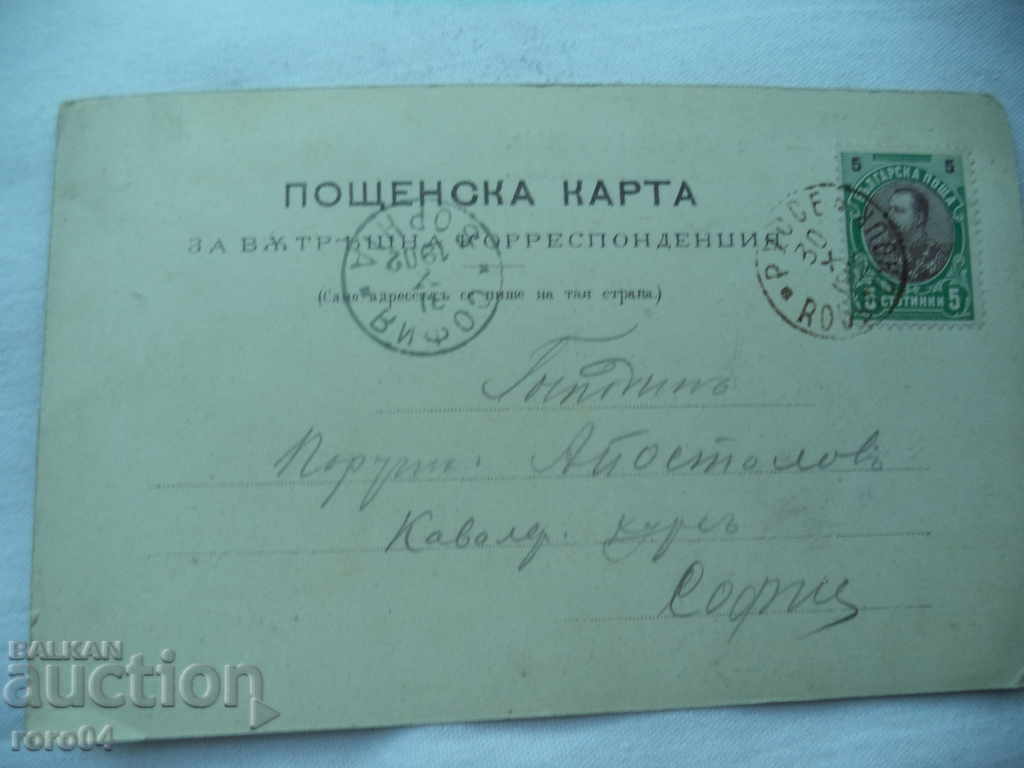 ПОЩЕНСКА КАРТА
ЗА ВѪТРѢШНА КОРРЕСПОНДЕНЦИЯ
(Само адрессътъ се пише на тая страна.)
5 5
БЪЛГАРСКА ПОЩА
5 СТОТИНКИ 5
РУСЕ
30
ROU
СОФИЯ
ГОРНА
1902
31
Господинъ
Поручи: Апостоловъ
Кавалер. курсъ
София
BALKAN
auction
roro04